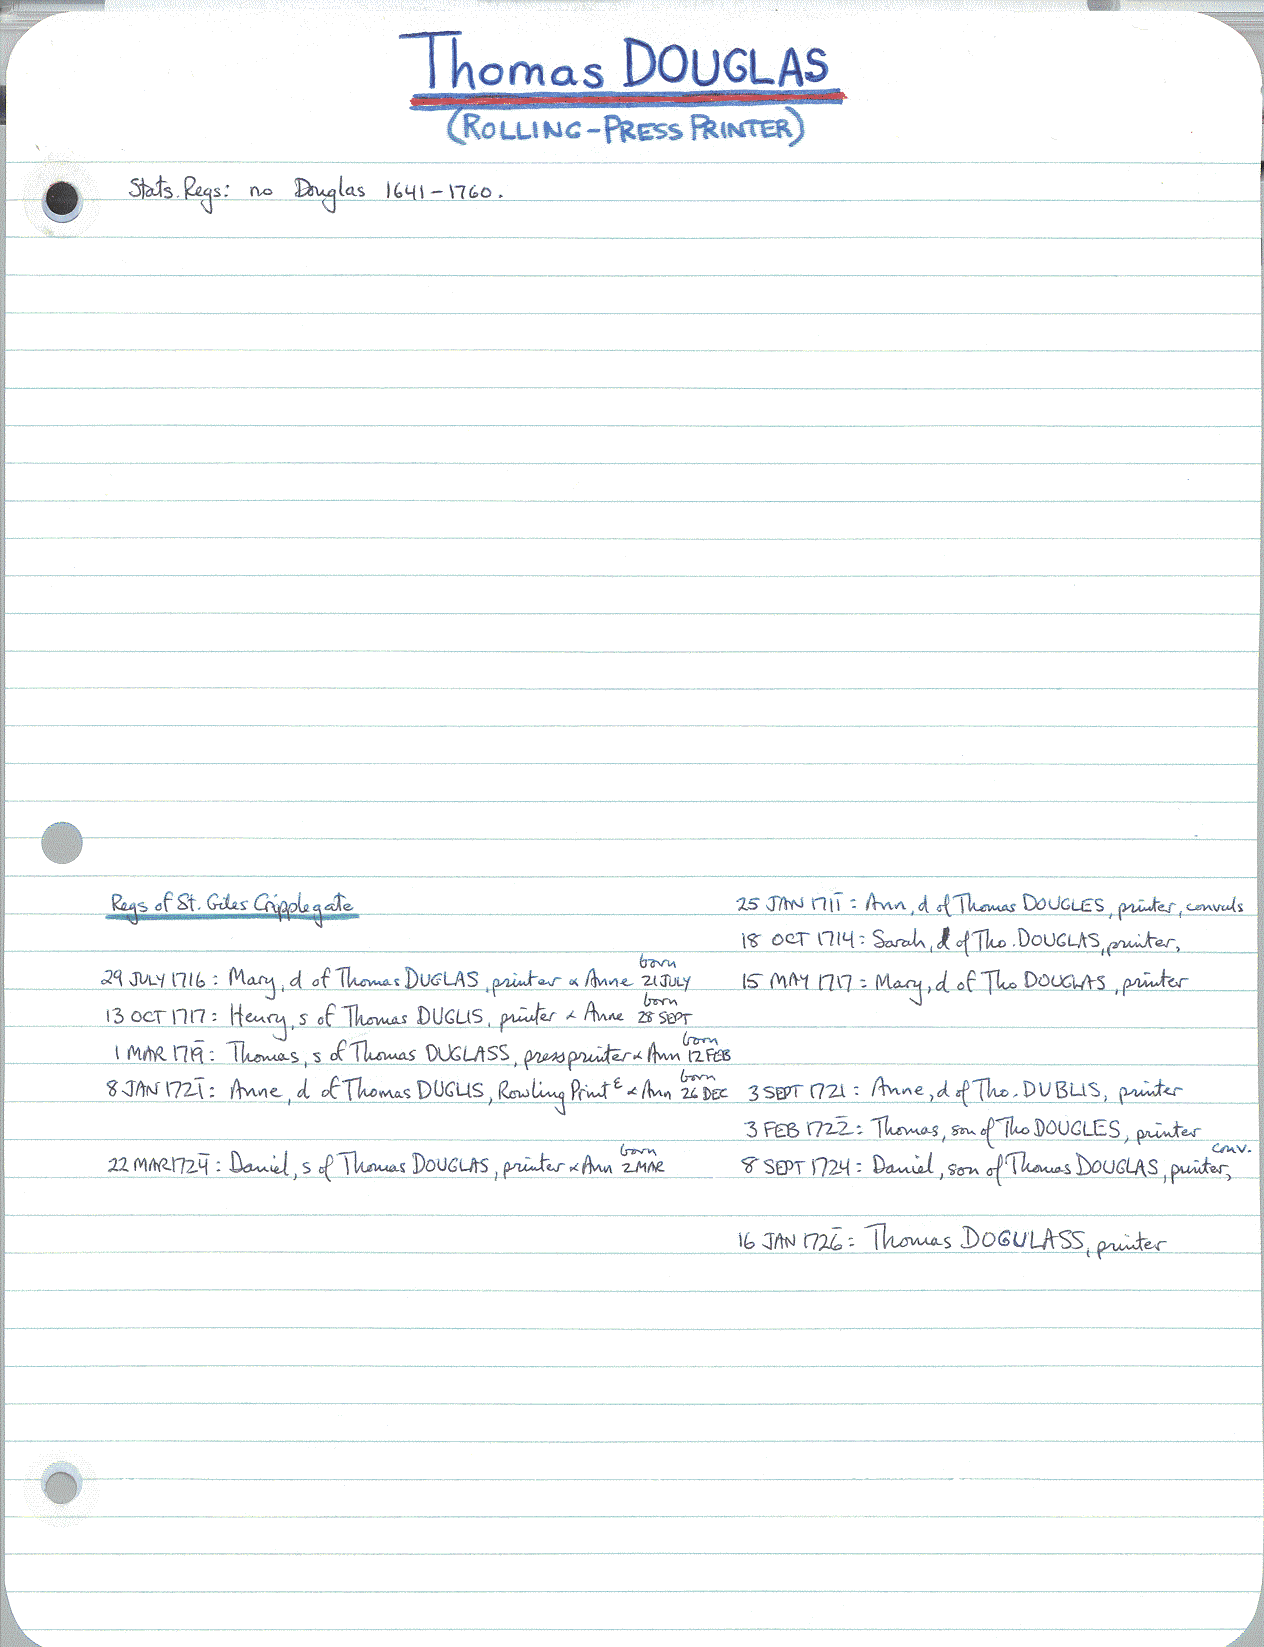 Thomas DOUGLAS
(ROLLING-PRESS PRINTER)
Stats. Regs: no Douglas 1641-1760.
Regs of St. Giles Cripplegate
29 JULY 1716: Mary, d of Thomas DUGLAS, printer & Anne born 21 JULY
13 OCT 1717: Henry, s of Thomas DUGLIS, printer & Anne born 28 SEPT
1 MAR 1719: Thomas, s of Thomas DUGLASS, press printer & Ann born 12 FEB
8 JAN 1721: Anne, d of Thomas DUGLIS, Rowling Printr & Ann born 26 DEC
22 MAR 1724: Daniel, s of Thomas DOUGLAS, printer & Ann born 2 MAR
25 JAN 1711: Ann, d of Thomas DOUGLES, printer, convuls
18 OCT 1714: Sarah, d of Tho. DOUGLAS, printer,
15 MAY 1717: Mary, d of Tho DOUGLAS, printer
3 SEPT 1721: Anne, d of Tho. DUBLIS, printer
3 FEB 1722: Thomas, son of Tho DOUGLES, printer
8 SEPT 1724: Daniel, son of Thomas DOUGLAS, printer, conv.
16 JAN 1726: Thomas DOGULASS, printer